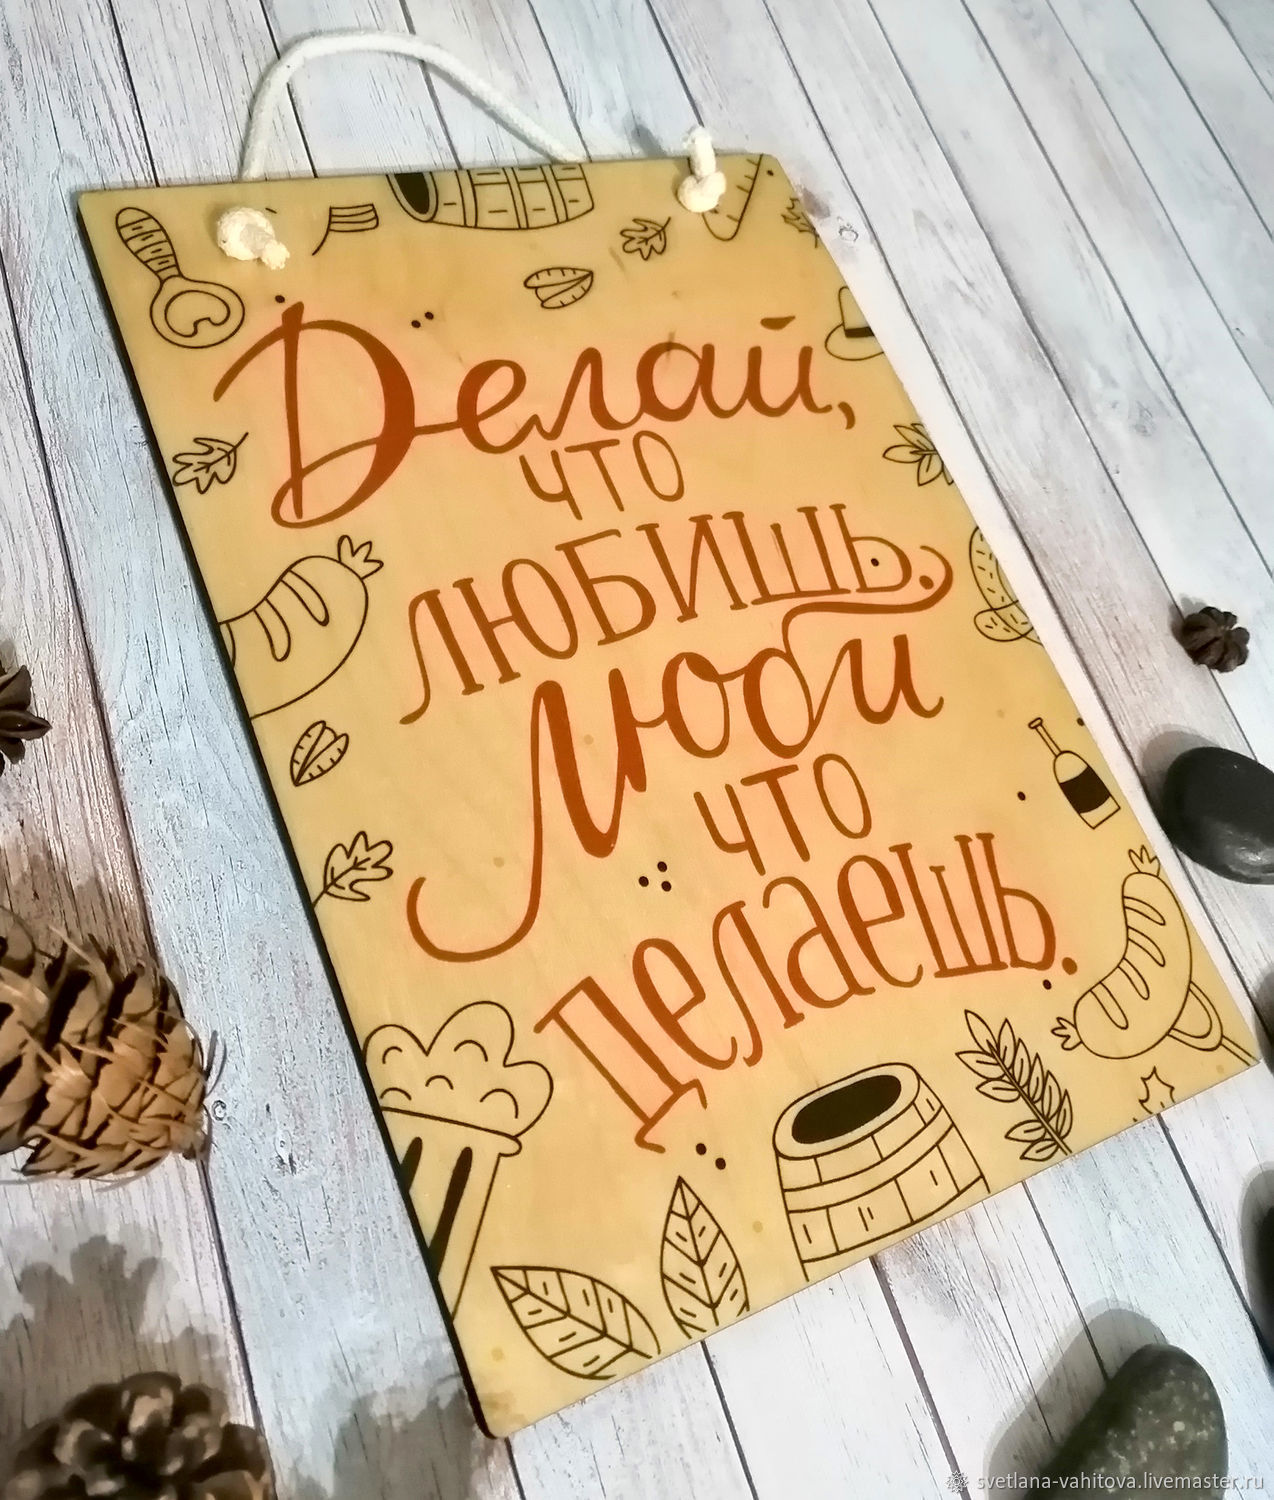 Делай,
что
любишь.
Люби
что
делаешь.
svetlana-vahitova.livemaster.ru